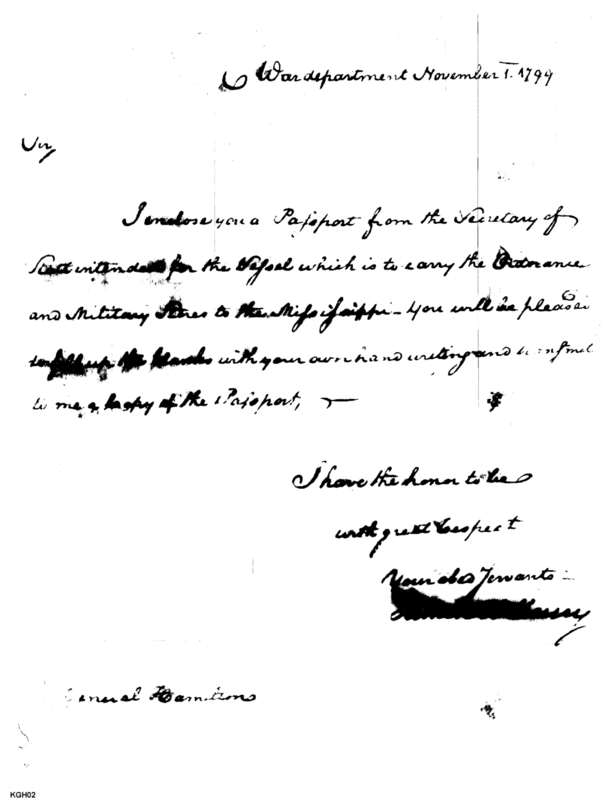 War department November 1. 1799
Sir,
I enclose you a Passport from the Secretary of
State intended for the Vessel which is to carry the Ordnance
and Military Stores to the Mississippi — You will be pleased
to fill up the blanks with your own hand writing and
to me a Copy of the Passport, —
I have the honor to be
with great respect
Your obed Servant
General Hamilton
KGH02